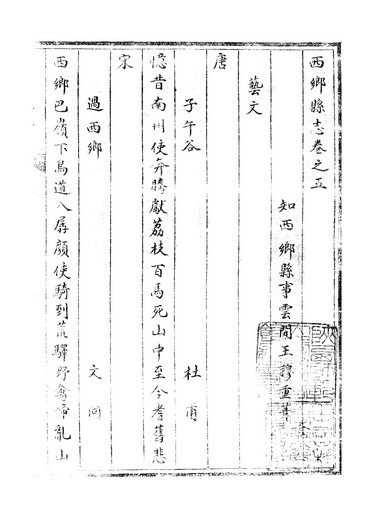 西鄉縣志卷之五
知西鄉縣事雲間王穆重葺
藝文
唐
子午谷　杜甫
憶昔南州使奔騰獻荔枝百馬死山中至今耆舊悲
宋
過西鄉　文同
西鄉巴嶺下鳥道入孱顏使騎到荒驛野禽啼亂山